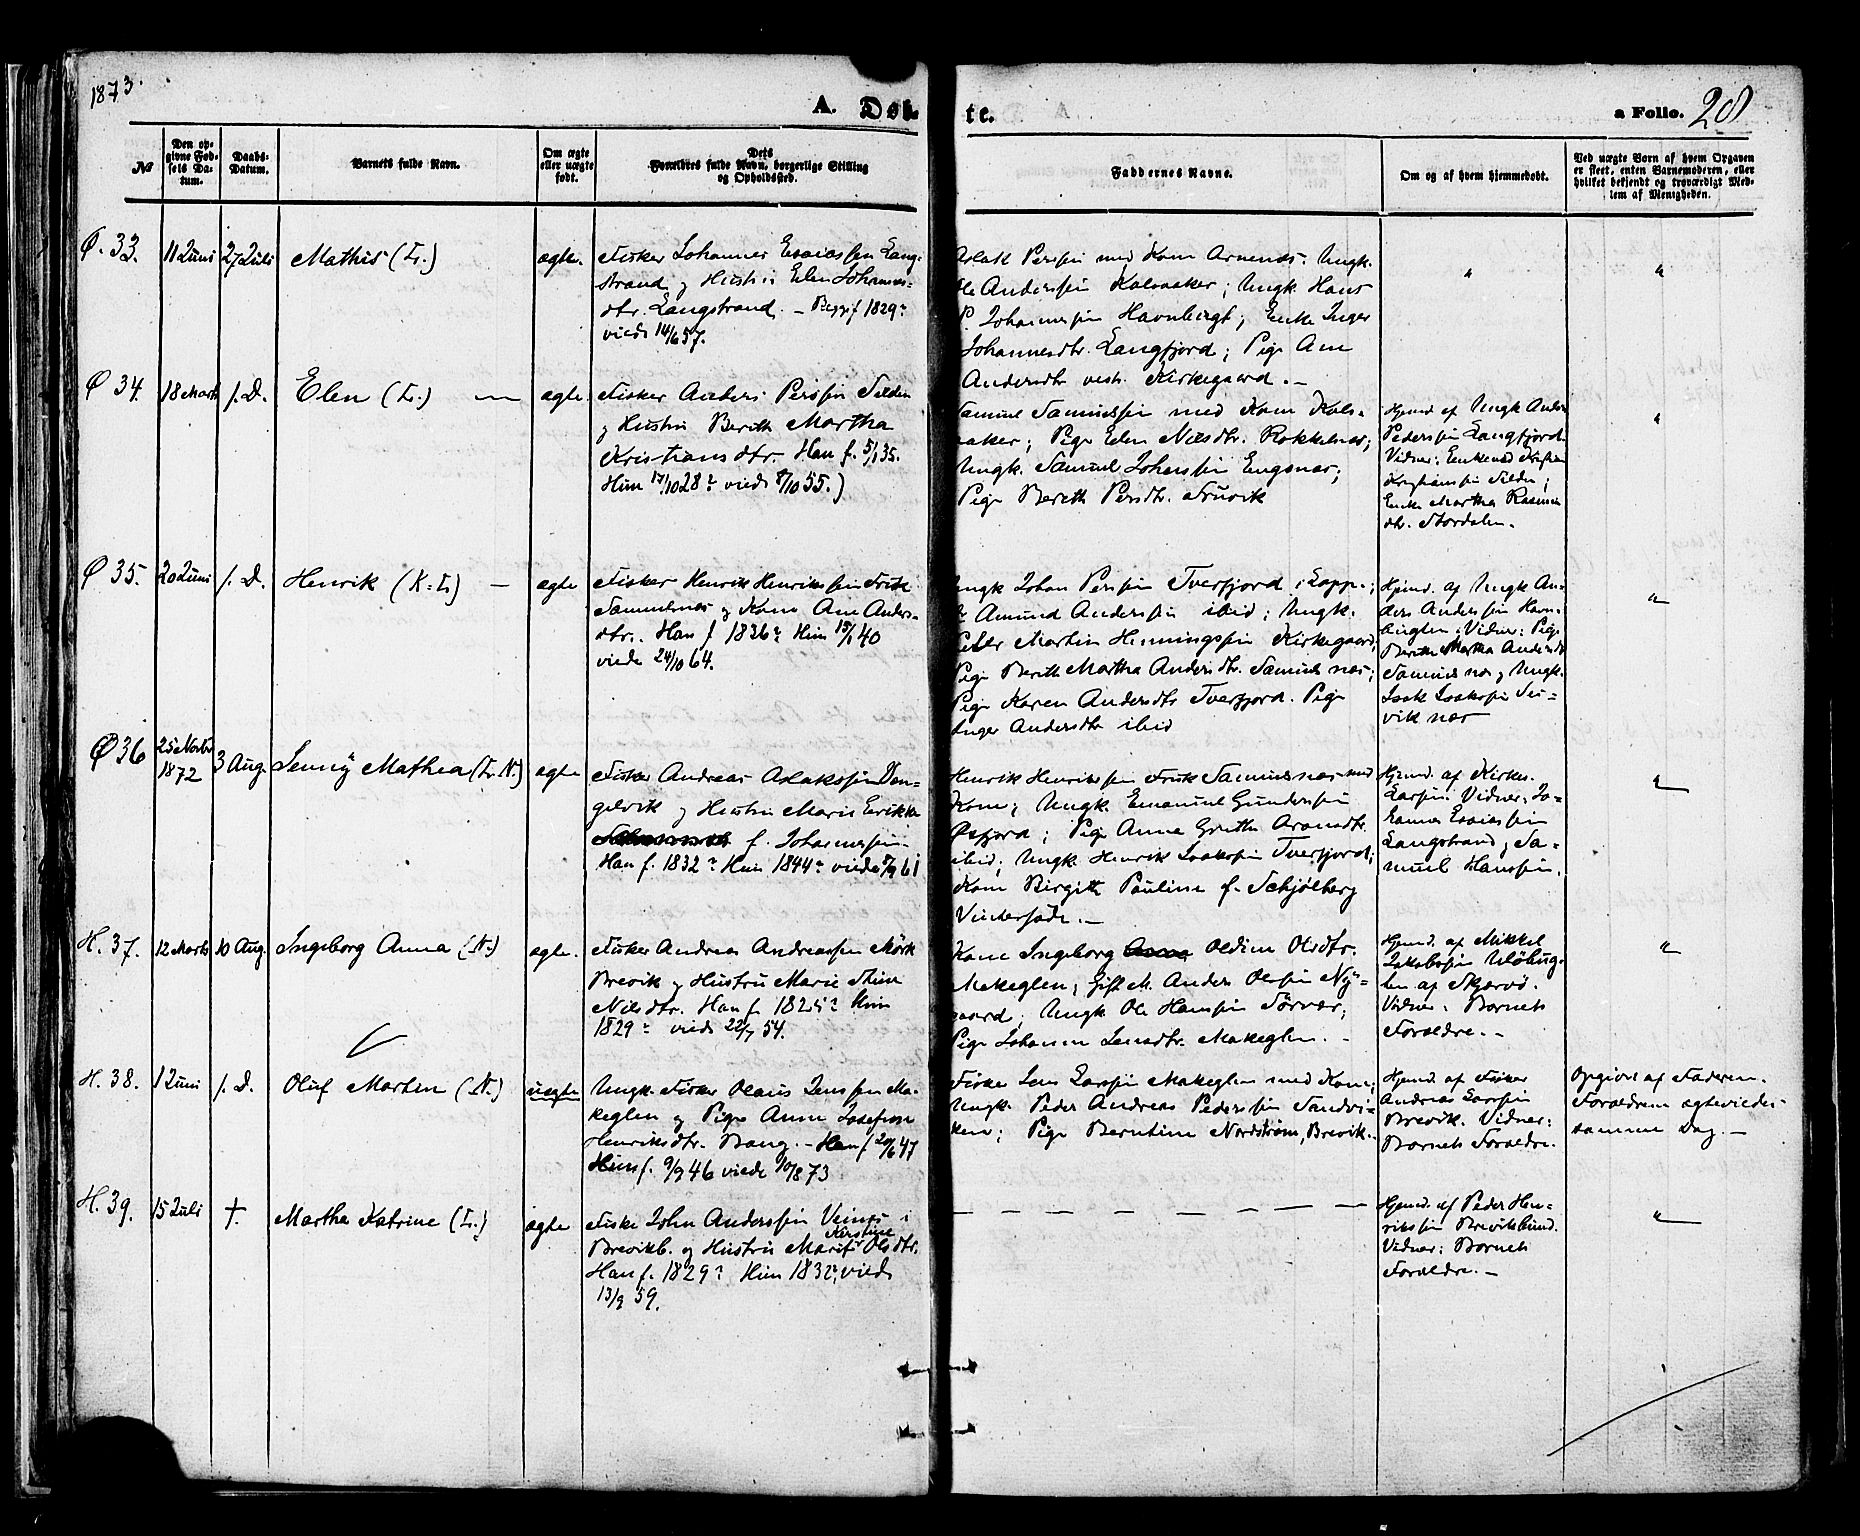 1873.
A. Døb-
te.
a Folio. 28
№
Den op-
givne Fød-
sels Da-
tum.
Daabs-
Datum.
Barnets fulde Navn.
Om ægte
eller uægte
født.
Dets
Forældres fulde Navn, borgerlige Stilling
og Opholdssted.
Faddernes Navne.
Om og af hvem hjemmedøbt.
Ved uægte Børn af hvem Opgaven
er skeet, enten Barnemoderen, eller
hvilket bekjendt og troværdigt Med-
lem af Menigheden.
Ø. 33. 11 Juni 27 Juli Mathis (L.) ægte.
Fisker Johannes Esaiassen Lang-
strand og Hustru Elen Johannes-
dtr. Langstrand. – Begge f 1829?
viede 14/6 57.
Aslak Persen med Kone Arnenæs. Ungk.
Ole Anderssen Kalvaaker; Ungk. Hans
P. Johannessen Havnbugt; Enke Inger
Johannesdtr. Langfjord; Pige Ane
Andersdtr vestr. Kirkegaard. –
"
"
Ø 34. 18 Marts s. D. Elen (L.) — ægte
Fisker Anders Perssen Silden
og Hustru Berith Martha
Kristiansdtr. Han f. 5/1 35.
Hun 17/10 28? viede 8/10 55.)
Samuel Samuelssen med Kone Kals-
aaker; Pige Elen Nilsdtr. Rokkelnæs;
Ungk. Samuel Johanssen Engsnæs;
Pige Berith Persdtr. Fruvik
Hjemd. af Ungk Anders
Pederssen Langfjord.
Vidner: Enkemd Kristian
Kristianssen Silden;
Enke Martha Rasmus
dtr. Stordalen.
"
Ø 35. 20 Juni s. D. Henrik (K=L) – ægte
Fisker Henrik Henrikssen Frisk
Samuelnæs og Kone Ane Anders-
dtr. Han f 1836? Hun 15/1 40
viede 24/10 64.
Ungk Johan Perssen Tverfjord i Lopp.;
Amund Anderssen ibid; Ungk.
Peder Martin Henningssen Kirkegaard;
Pige Berith Martha Andersdtr. Samuelnæs;
Pige Karen Andersdtr Tverfjord. Pige
Inger Andersdtr ibid
Hjemd. af Ungk An-
ders Anderssen Havn-
bugten. Vidner: Pige
Berith Martha Andersdtr
Samuelnæs og Ungk.
Isak Isakssen
vik næs
"
Ø 36 25 Novbr 1872 3 Aug. Jenny Mathea (L. N.) ægte
Fisker Andreas Aslakssen
og Hustru Marie Erikke
f. Johannessen.
Han f. 1832? Hun 1844? viede 61
Henrik Henrikssen Frisk Samuelnæs med
Kone; Ungk. Emanuel Gunderssen
Øxfjord; Pige Anne Grethe Aronsdtr.
ibid; Ungk Henrik Isakssen Tverfjord;
Kone Birgitte Pauline f. Schjølberg
Vintersøde. –
Hjemd. af Kirkes.
Larssen. Vidner: Jo-
hannes Esaiassen
Langstrand, Sa-
muel Hanssen.
"
H. 37. 12 Marts 10 Aug. Ingeborg Anna (N.) ægte.
Fisker Andreas Andreassen Mørk
Brevik og Hustru Marie Stine
Nilsdtr. Han f 1825? Hun
1829? viede 22/7 54.
Kone Ingeborg Anna Oldine Olsdtr.
Makeglen; Gift M. Anders Olssen Ny-
gaard; Ungk Ole Hanssen Sørvær;
Pige Johanne Jensdtr. Makeglen. –
Hjemd. af Mikkel
Jakobssen Uløbug-
ten af Skjervø.
Vidner. Barnets
Forældre. –
"
H. 38. 1 Juni s. D. Oluf Marten (N.) uægte
Ungk. Fisker Olaus Jenssen Ma-
keglen og Pige Anne Josefine
Henriksdtr. Bang. – Han f 20/6 47
Hun f. 9/9 46 viede 10/8 73
Fisker Jens Larssen Makeglen med Kone;
Ungk. Peder Andreas Pederssen Sandvi-
ken; Pige Berntine Nordstrøm, Brevik.
Hjemd. af Fisker
Andreas Larssen
Brevik. Vidner:
Barnets Forældre.
Opgivet af Faderen.
Forældrene ægteviedes
samme Dag. –
H. 39. 15 Juli †. Martha Katrine (L.) ægte
Fisker John Anderssen Veines i
Brevikb. og Hustru Marit Kirstine Olsdtr.
Han f. 1829? Hun 1832?, viede
13/9 59.
— — — — — — — — — —
Hjemd. af Peder Hen-
rikssen Brevikbund.
Vidner: Barnets
Forældre. –
"